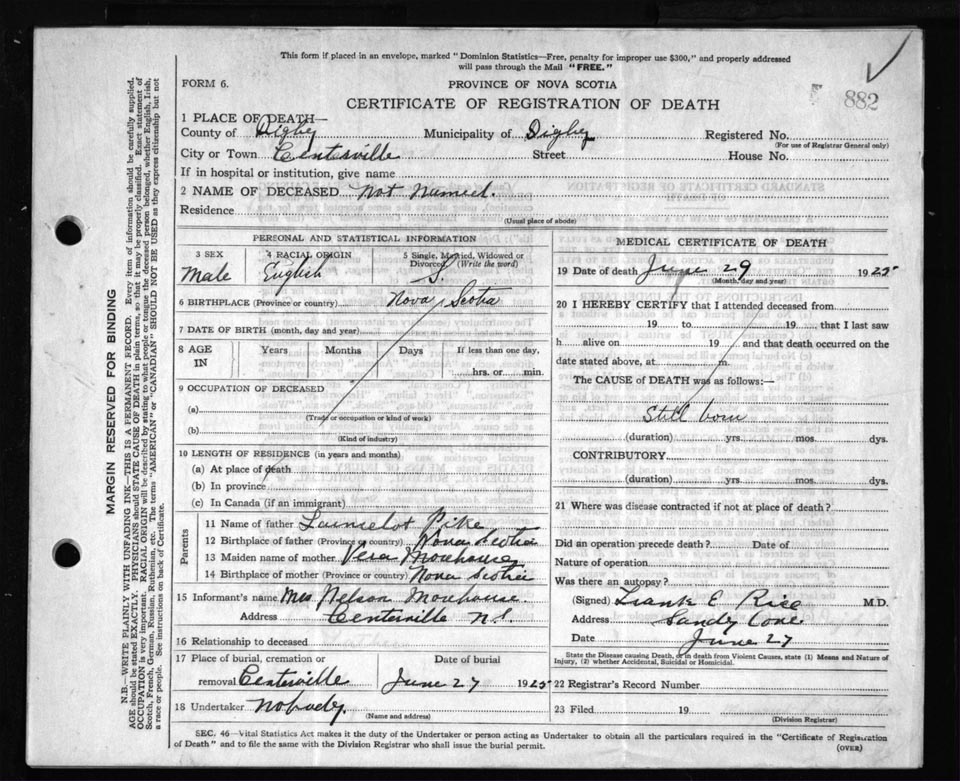 This form if placed in an envelope, marked "Dominion Statistics—Free, penalty for improper use $300," and properly addressed
will pass through the Mail "FREE."
FORM 6.
PROVINCE OF NOVA SCOTIA
882
CERTIFICATE OF REGISTRATION OF DEATH
1 PLACE OF DEATH—
County of Digby Municipality of Digby Registered No.
(For use of Registrar General only)
City or Town Centerville Street House No.
If in hospital or institution, give name
2 NAME OF DECEASED Not Named.
Residence
(Usual place of abode)
PERSONAL AND STATISTICAL INFORMATION
3 SEX Male
4 RACIAL ORIGIN English
5 Single, Married, Widowed or Divorced (Write the word) S.
6 BIRTHPLACE (Province or country) Nova Scotia
7 DATE OF BIRTH (month, day and year)
8 AGE IN Years Months Days If less than one day, hrs. or min.
9 OCCUPATION OF DECEASED
(a)
(Trade or occupation or kind of work)
(b)
(Kind of industry)
10 LENGTH OF RESIDENCE (in years and months)
(a) At place of death
(b) In province
(c) In Canada (if an immigrant)
Parents
11 Name of father Launcelot Pike
12 Birthplace of father (Province or country) Nova Scotia
13 Maiden name of mother Vera Morehouse
14 Birthplace of mother (Province or country) Nova Scotia
15 Informant's name Mrs Nelson Morehouse.
Address Centerville N.S.
16 Relationship to deceased
17 Place of burial, cremation or removal Centerville
Date of burial June 27 1925
18 Undertaker Nobody.
(Name and address)
MEDICAL CERTIFICATE OF DEATH
19 Date of death June 29 1925
(Month, day and year)
20 I HEREBY CERTIFY that I attended deceased from
19 to 19 , that I last saw
h alive on 19 and that death occurred on the
date stated above, at m.
The CAUSE of DEATH was as follows:—
Still born
(duration) yrs. mos. dys.
CONTRIBUTORY
(duration) yrs. mos. dys.
21 Where was disease contracted if not at place of death?
Did an operation precede death? Date of
Nature of operation
Was there an autopsy?
(Signed) Frank E Rice M.D.
Address Sandy Cove
Date June 27
State the Disease causing Death, or in death from Violent Causes, state (1) Means and Nature of
Injury, (2) whether Accidental, Suicidal or Homicidal.
22 Registrar's Record Number
23 Filed 19
(Division Registrar)
SEC. 46—Vital Statistics Act makes it the duty of the Undertaker or person acting as Undertaker to obtain all the particulars required in the "Certificate of Registration
of Death" and to file the same with the Division Registrar who shall issue the burial permit.
(OVER)
MARGIN RESERVED FOR BINDING
N.B.—WRITE PLAINLY WITH UNFADING INK—THIS IS A PERMANENT RECORD. Every item of information should be carefully supplied.
AGE should be stated EXACTLY. PHYSICIANS should STATE CAUSE OF DEATH in plain terms, so that it may be properly classified. Exact statement of
OCCUPATION is very important. RACIAL ORIGIN will be described by stating to what people or tongue the deceased person belonged, whether English, Irish,
Scotch, French, German, Russian, Ruthenian, etc. The terms "AMERICAN" or "CANADIAN" SHOULD NOT BE USED as they express citizenship but not
a race or people. See instructions on back of Certificate.